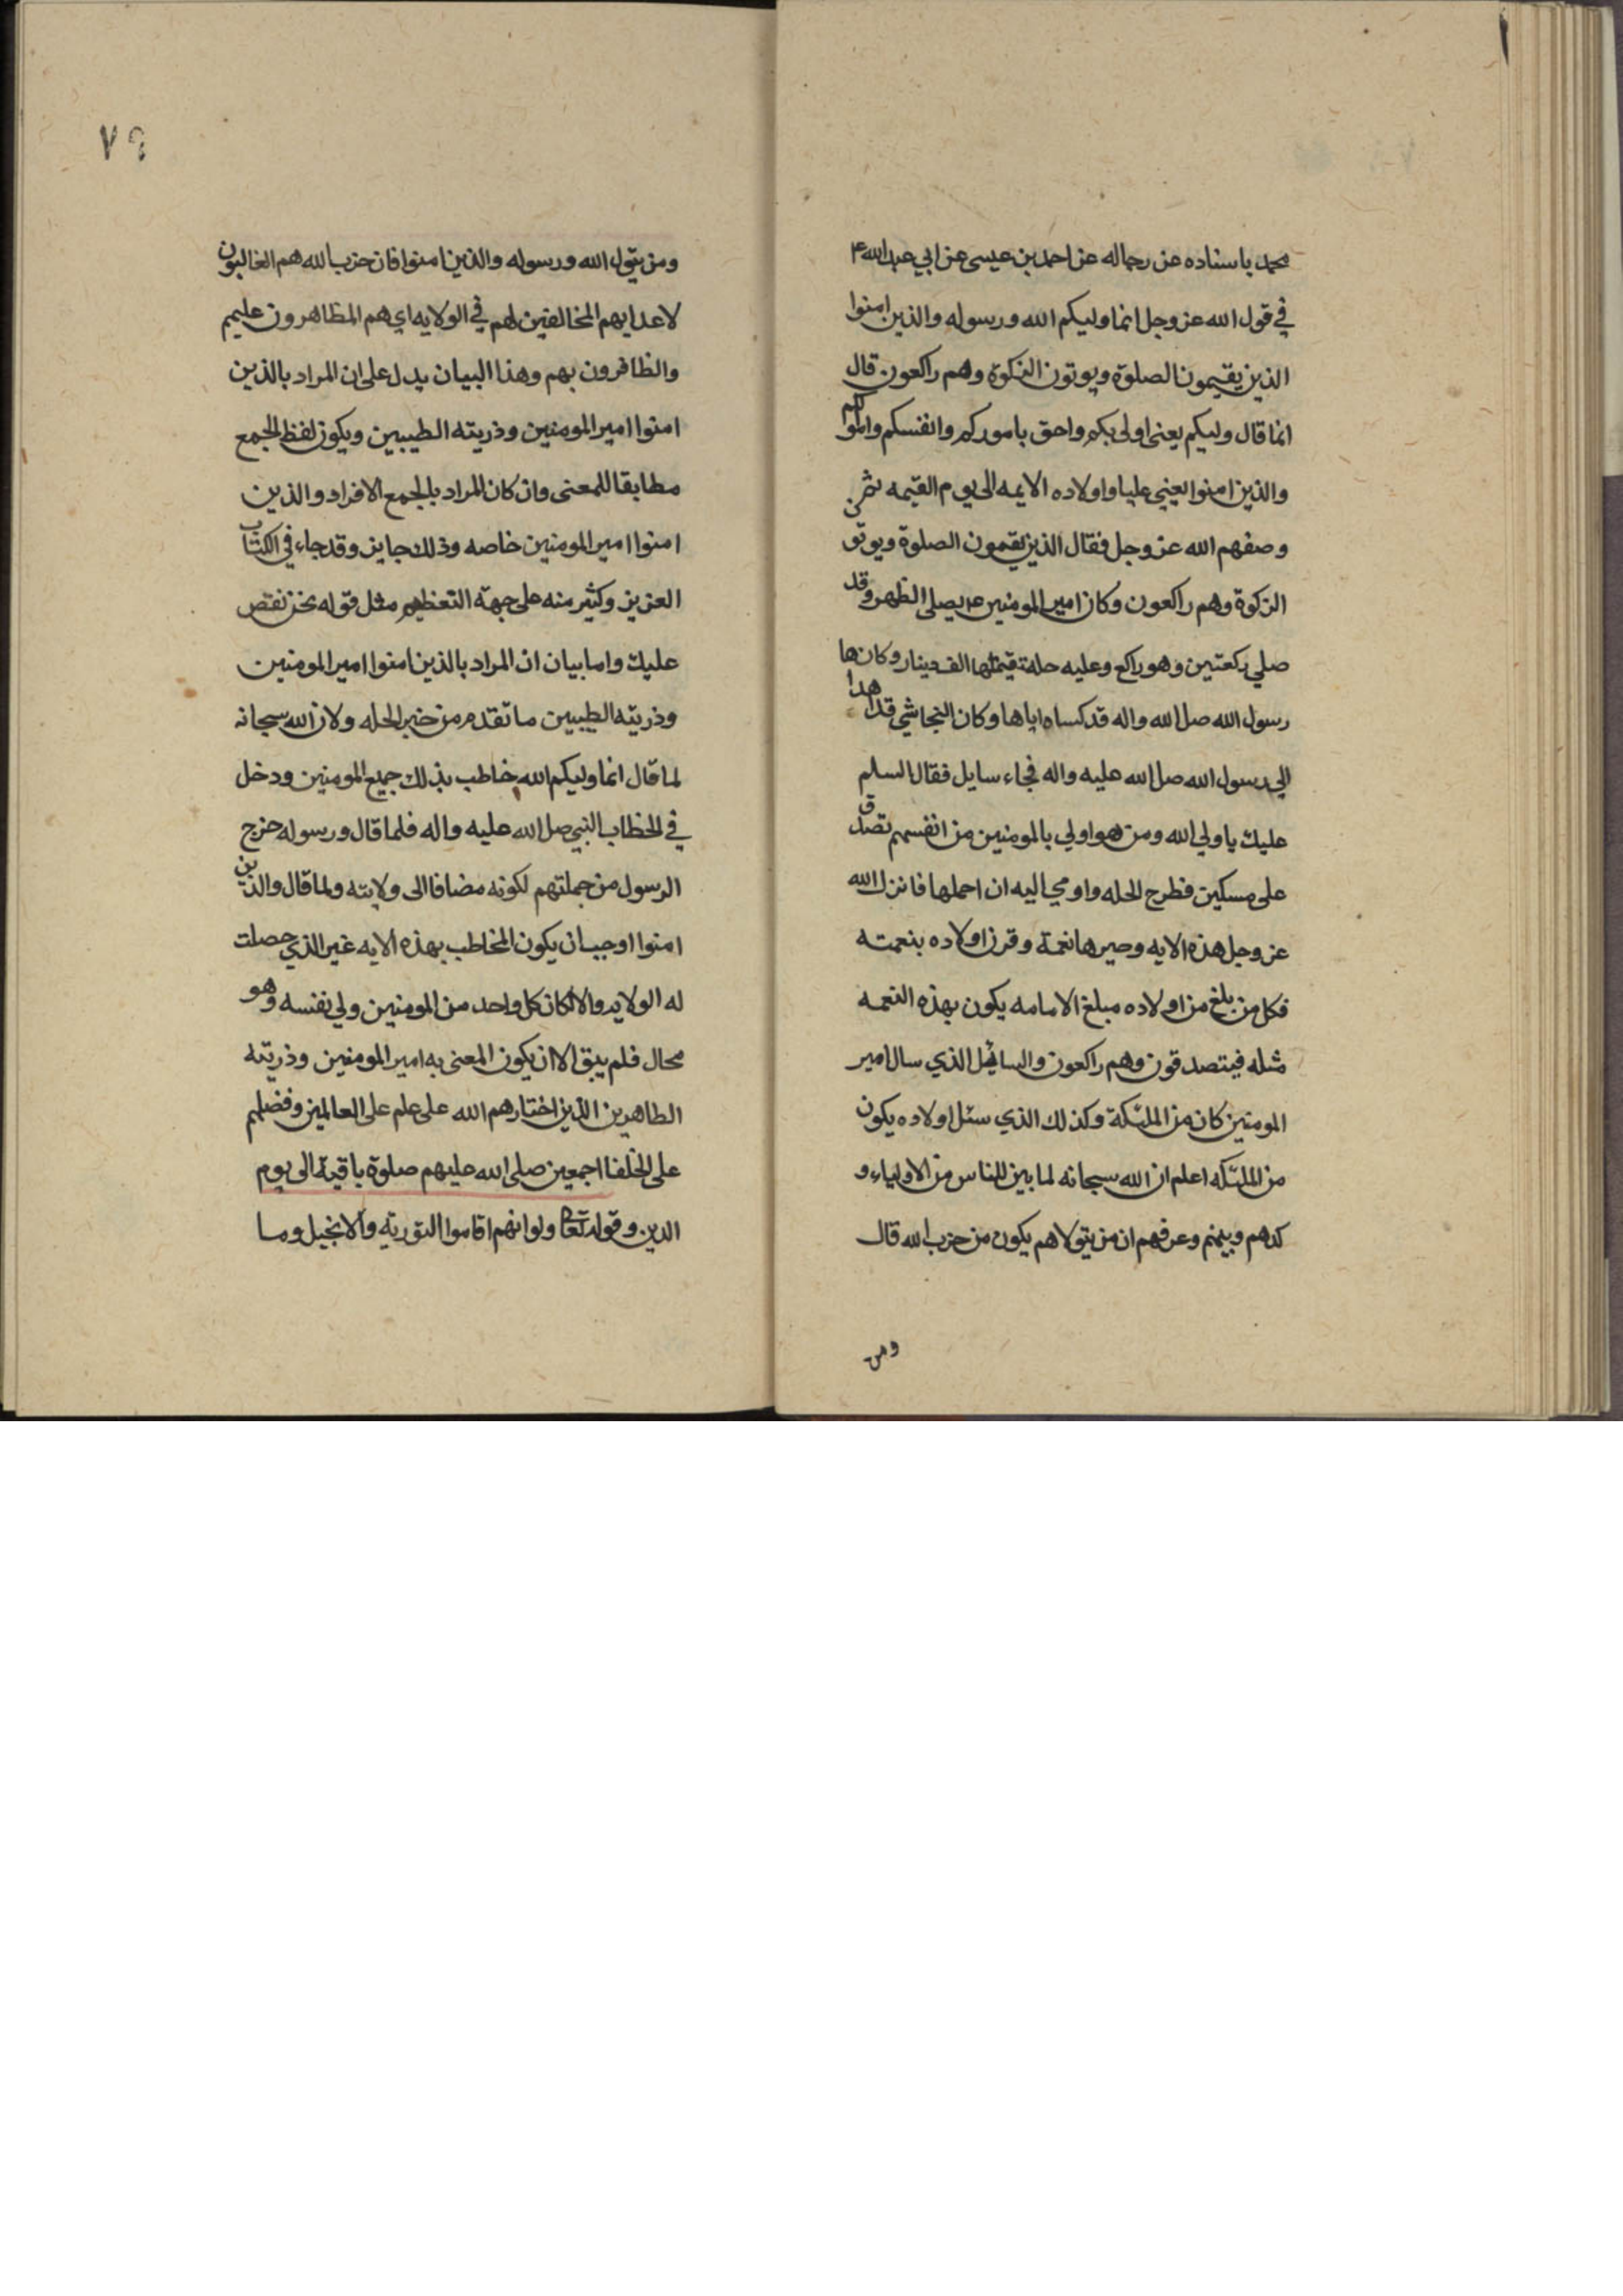 محمد باسناده عن رجاله عن احمد بن عيسى عن ابي عبد الله ع
في قول الله عز وجل انما وليكم الله ورسوله والذين امنوا
الذين يقيمون الصلوة ويوتون الزكوة وهم راكعون قال
انما قال وليكم يعنى اولى بكم واحق باموركم وانفسكم واموالكم
والذين امنوا يعني عليا واولاده الايمه الى يوم القيمه ثم
وصفهم الله عز وجل فقال الذين يقيمون الصلوة ويوتون
الزكوة وهم راكعون وكان امير المومنين ع يصلي الظهر وقد
صلي ركعتين وهو راكع وعليه حلة قيمتها الف دينار وكان
رسول الله صل الله واله قد كساه اياها وكان النجاشي قد اهداها
الي رسول الله صل الله عليه واله فجاء سايل فقال السلم
عليك يا ولي الله ومن هو اولي بالمومنين من انفسهم تصدق
على مسكين فطرح الحله واومي اليه ان احملها فانزل الله
عز وجل هذه الايه وصيرها نعمة وقرن اولاده بنعمته
فكل من بلغ من اولاده مبلغ الامامه يكون بهذه النعمه
مثله فيتصدقون وهم راكعون والسائل الذي سال امير
المومنين كان من الملئكة وكذلك الذي سئل اولاده يكون
من الملئكه اعلم ان الله سبحانه لما بين للناس من الاولياء و
كدهم وبينهم وعرفهم ان من يتولاهم يكون من حزب الله قال
ومن
٧٩
ومن يتول الله ورسوله والذين امنوا فان حزب الله هم الغالبون
لاعدايهم المخالفين لهم في الولايه اي هم المظاهرون عليهم
والظافرون بهم وهذا البيان يدل على ان المراد بالذين
امنوا امير المومنين وذريته الطيبين ويكون لفظ الجمع
مطابقا للمعنى وان كان المراد بالجمع الافراد والذين
امنوا امير المومنين خاصه وذلك جايز وقد جاء في الكتاب
العزيز وكثير منه على جهة التعظيم مثل قوله نحن نقص
عليك واما بيان ان المراد بالذين امنوا امير المومنين
وذريته الطيبين ما تقدم من خبر الحله ولان الله سبحانه
لما قال انما وليكم الله خاطب بذلك جميع المومنين ودخل
في الخطاب النبي صل الله عليه واله فلما قال ورسوله خرج
الرسول من جملتهم لكونه مضافا الى ولايته ولما قال والذين
امنوا اوجب ان يكون المخاطب بهذه الايه غير الذي حصلت
له الولايه والا لكان كل واحد من المومنين ولي نفسه وهو
محال فلم يبق الا ان يكون المعنى به امير المومنين وذريته
الطاهرين الذين اختارهم الله على علم على العالمين وفضلهم
على الخلفا اجمعين صلى الله عليهم صلوة باقية الى يوم
الدين وقوله تعا ولو انهم اقاموا التورية والانجيل وما